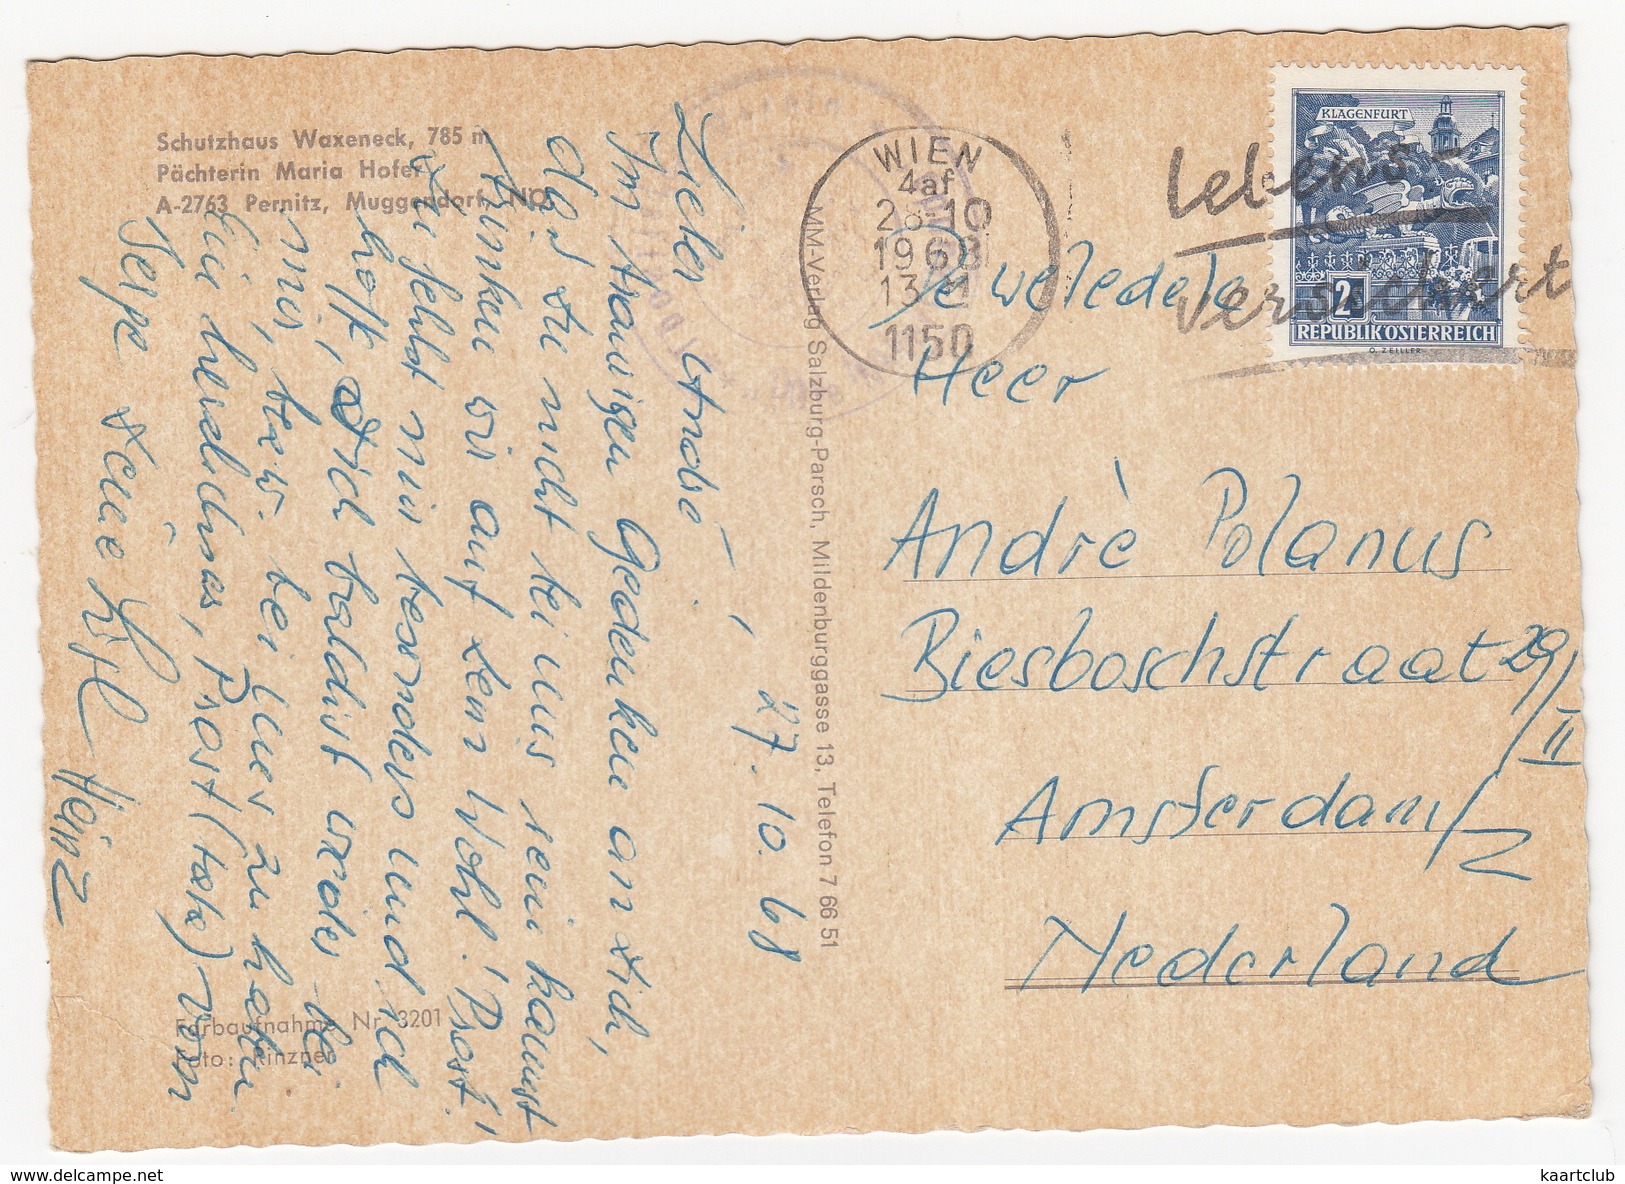 Schutzhaus Waxeneck, 785 m
Pächterin Maria Hofer
A-2763 Pernitz, Muggendorf, NÖ
Lieber André –,
27.10.68
Im traurigen Gedenken an Dich,
daß Du nicht bei uns sein kannst
trinken wir auf Dein Wohl! Prost!
Du fehlst mir besonders und ich
hoffe, Dich baldist wieder bei
mir, bezw. bei uns zu haben
Ein herzliches, Prost (Hicks) vom
Serpe Deine
Heinz
Farbaufnahme Nr. 3201
Foto: Rinzner
MM-Verlag Salzburg-Parsch, Mildenburggasse 13, Telefon 7 66 51
WIEN
4af
28-10
1968
13
1150
Lebens-
versichert
KLAGENFURT
2
REPUBLIK ÖSTERREICH
O. ZEILLER
Weledele
Heer
Andrè Polanus
Biesboschstraat 29/II
Amsterdam/Z
Nederland
kaartclub